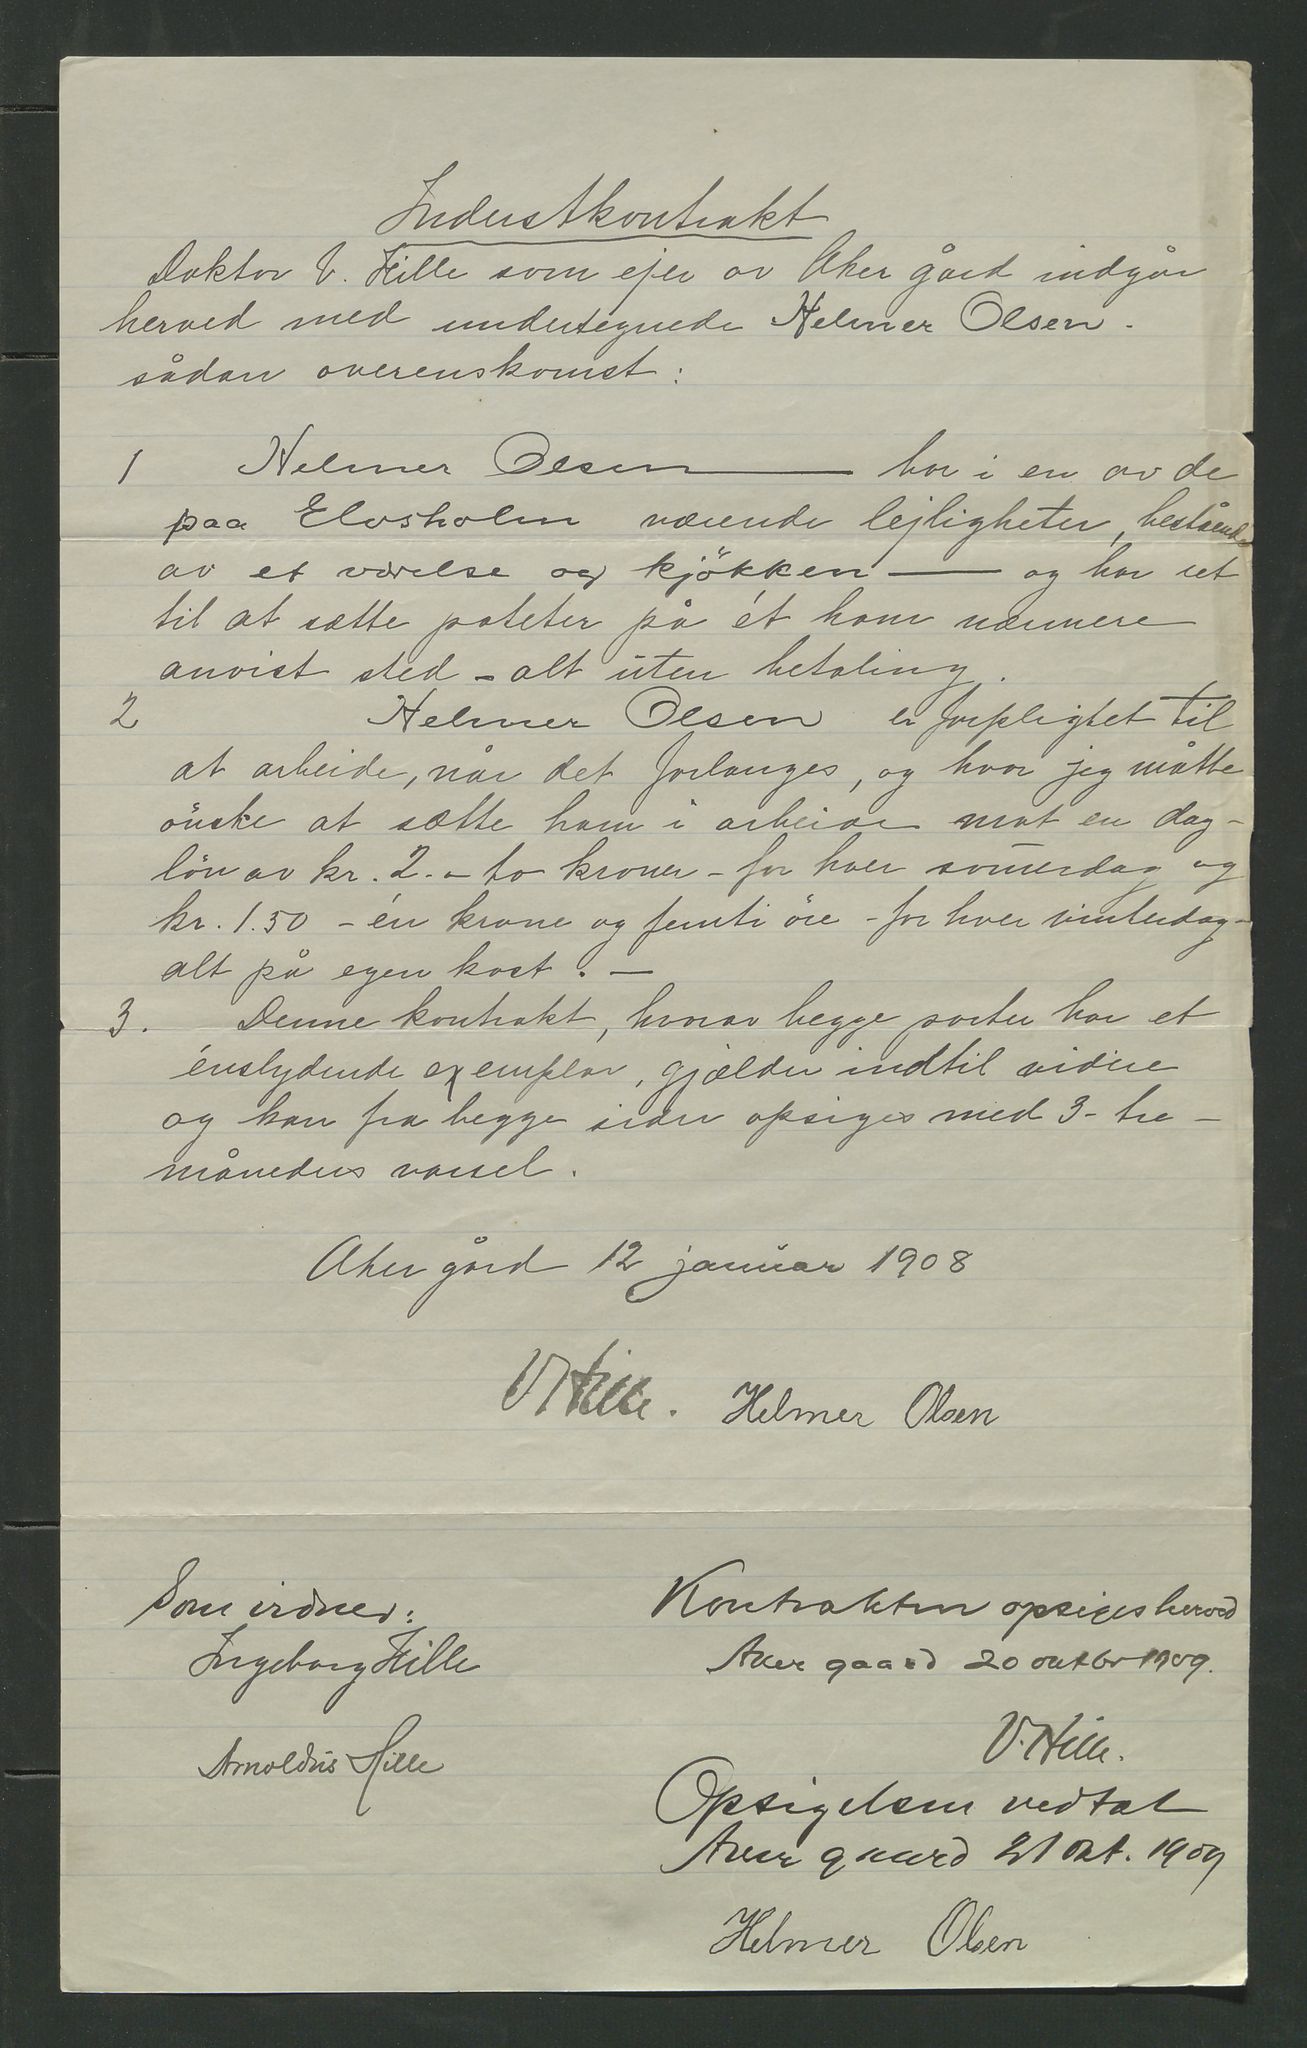 Inderstkontrakt
Doktor V. Hille som ejer av Aker gård indgår
herved med undertegnede Helmer Olsen.
sådan overenskomst:
1 Helmer Olsen — bor i en av de
paa Elvsholm værende lejligheter, bestående
av et værelse og kjökken — og har ret
til at sætte poteter på ét ham nærmere
anvist sted - alt uten betaling.
2 Helmer Olsen er forpligtet til
at arbeide, når det forlanges, og hvor jeg måtte
önske at sætte ham i arbeide mot en dag-
lön av kr. 2.- to kroner - for hver somerdag og
kr. 1.50 - én krone og femti öre - for hver vinterdag -
alt på egen kost. —
3. Denne kontrakt, hvorav begge parter har et
énslydende exemplar, gjælder indtil videre
og kan fra begge sider opsiges med 3 - tre -
måneders varsel.
Aker gård 12 januar 1908
V Hille. Helmer Olsen
Som vidner:
Ingeborg Hille
Arnoldus Hille
Kontrakten opsiges herved
Aker gaard 20 oktbr 1909.
V. Hille.
Opsigelsen vedtat
Aker gaard 21 okt. 1909
Helmer Olsen